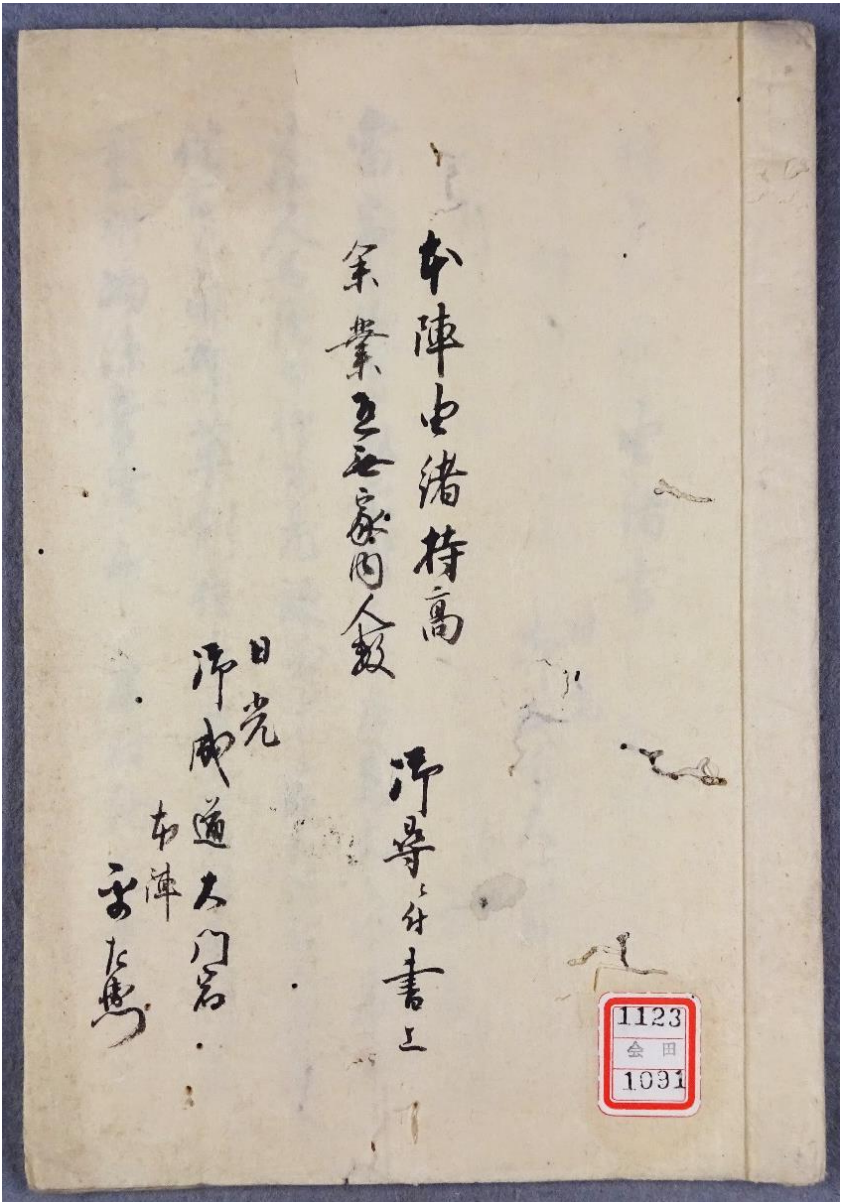 本陣由緒持高
余業有無家内人数
御尋ニ付書上
日光
御成道大門宿
本陣
平左衛門
1123
会田
1091